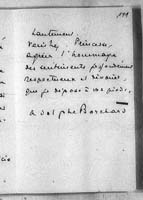 hautement.
Veuillez, Princesse,
agréer l'hommage
des sentiments profondément
respectueux et dévoués,
que je dépose à vos pieds.
Adolphe Borchard